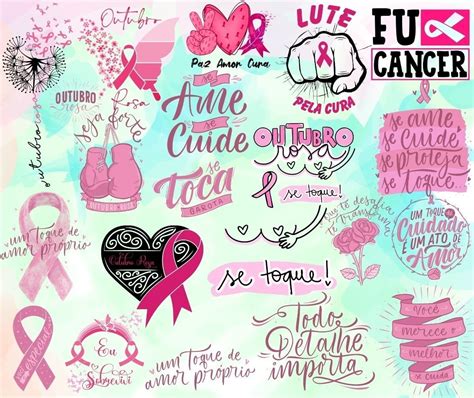 Outubro
Outubro rosa
Paz Amor Cura
LUTE
PELA CURA
FU
CANCER
OUTUBRO
rosa
Rosa
seja forte
OUTUBRO ROSA
se
Ame
se
Cuide
se
toca
GAROTA
OUTUBRO
rosa
se toque!
se toque!
se ame
se cuide
se proteja
se toque
um toque de
amor próprio
Outubro Rosa
o que te desafia
te transforma
UM TOQUE DE
Cuidado
É UM ATO DE
Amor
Eu
Sobrevivi
um toque de
amor próprio
Todo
Detalhe
importa
Você
merece o
melhor
se cuida